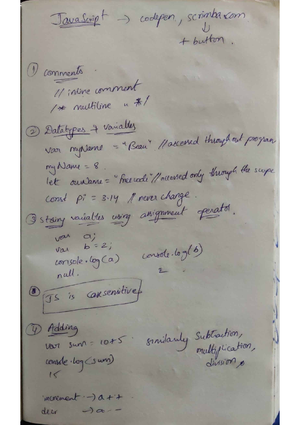 JavaScript → codepen, scrimba.com
↓
+ button.
① comments.
// inline comment
/* multiline " */
② Datatypes & variables
var myName = "Beau" // accessed throughout program
myName = 8.
let ourName = "freecode" // accessed only through the scope
const pi = 3.14 // never change.
③ storing variables using assignment operator.
var a;
var b = 2;
console.log(a) console.log(b)
null. 2
JS is casesensitive.
④ Adding
var sum = 10+5. similarly subtraction,
multiplication,
division.
console.log(sum)
15
increment → a++
decr → a--